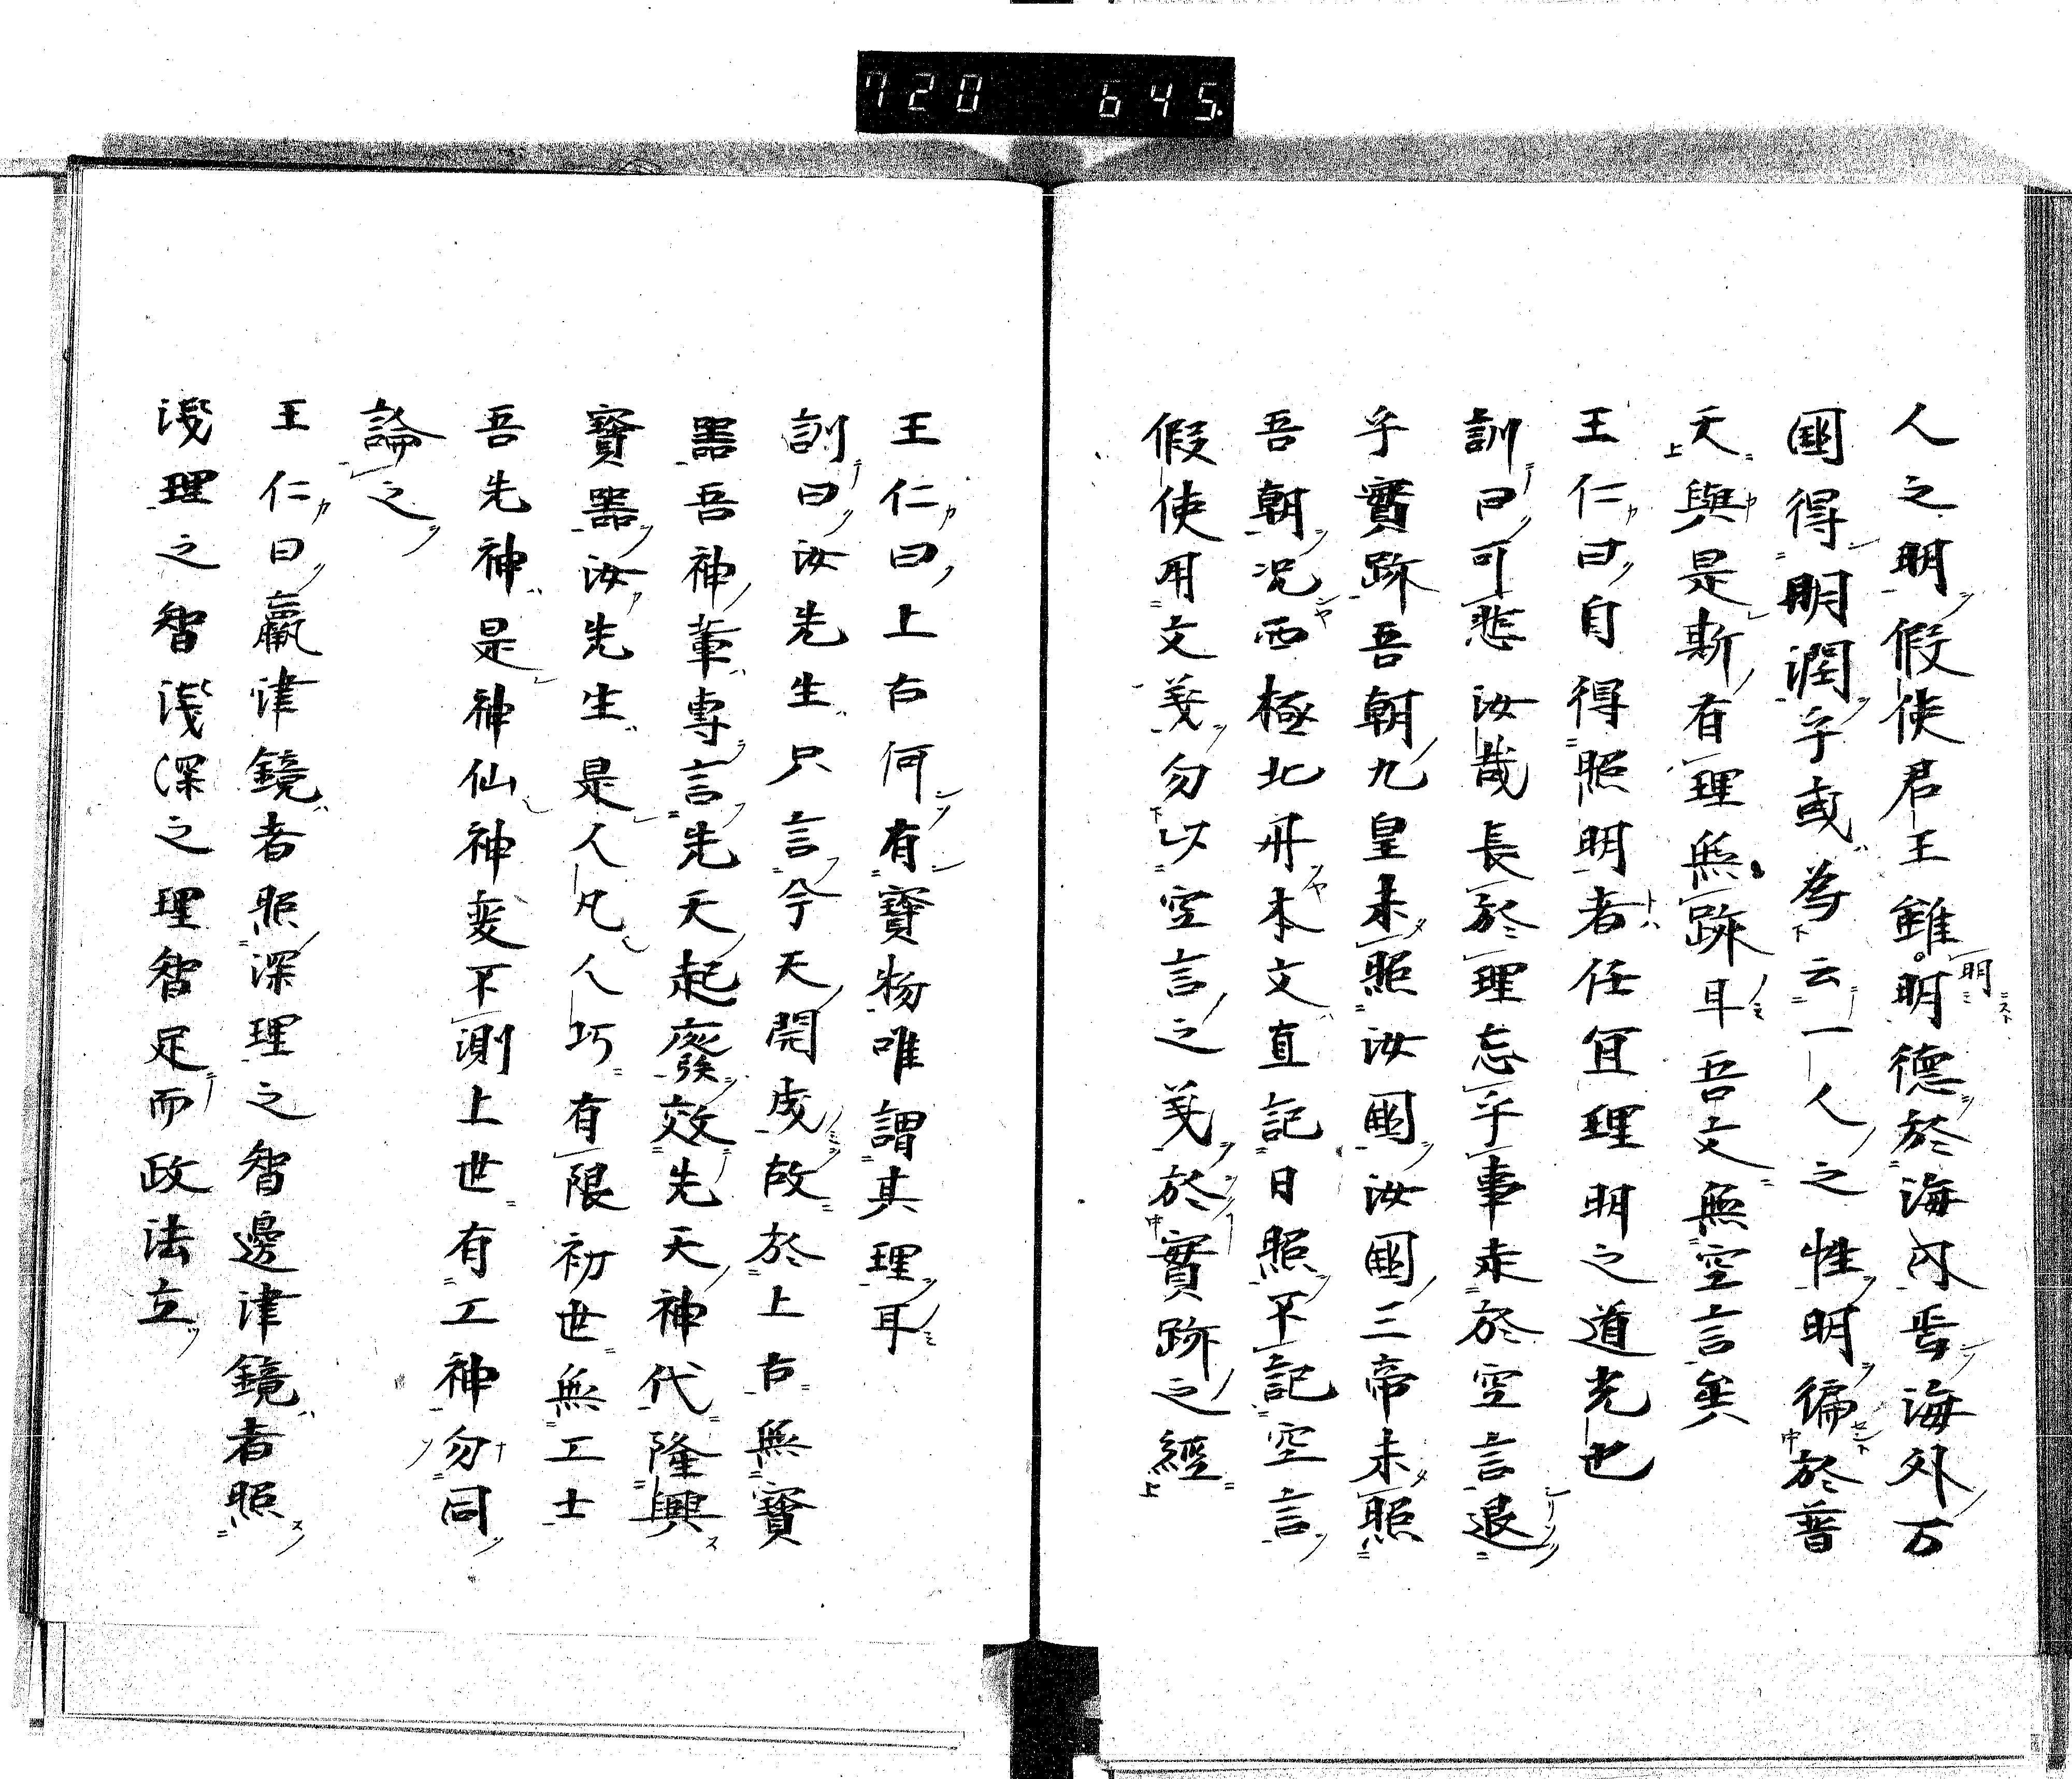 720 645
人之明假使君王雖明明德於海內焉海外万
國得明潤乎或為云一人之性明徧於普
天與是斯有理無跡耳吾文無空言矣
王仁曰自得照明者任宜理明之道光也
訓曰可悲汝哉長於理忘乎事走於空言退
乎實跡吾朝九皇未照汝國汝國三帝未照
吾朝況西極北丹本文直記日照不記空言
假使用文義勿以空言之義於實跡之經
王仁曰上古何有寶物唯謂其理耳
訓曰汝先生只言今天開成故於上古無寶
器吾神輩專言先天起廢效先天神代隆興
寶器汝先生是人凡人巧有限初世無工士
吾先神是神仙神變不測上世有工神勿同
論之
王仁曰贏津鏡者照深理之智邊津鏡者照
淺理之智淺深之理智足而政法立